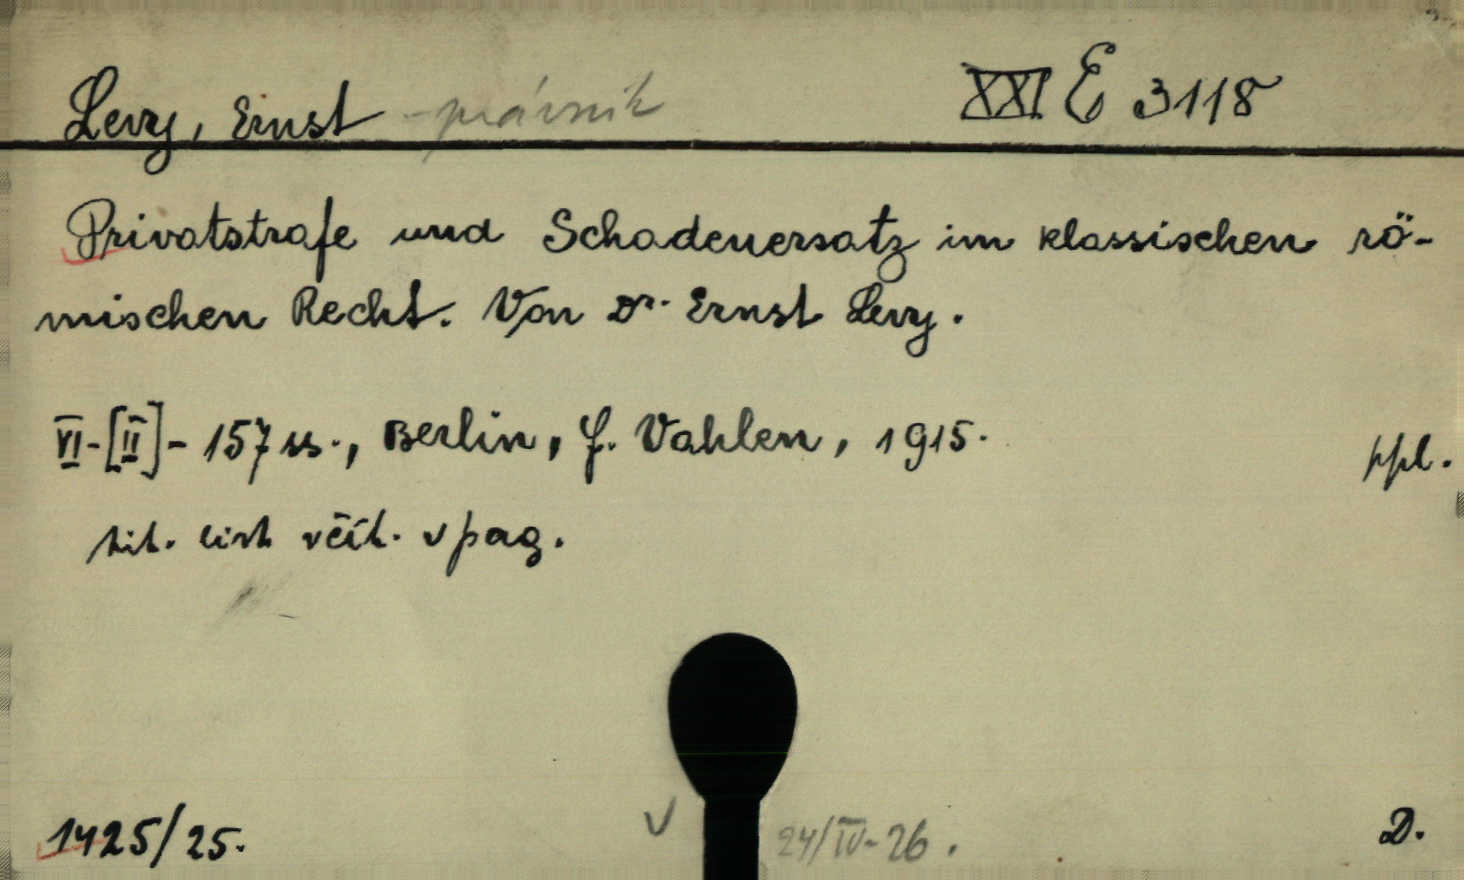 Levy, Ernst - právník XXI E 3118
Privatstrafe und Schadenersatz im klassischen rö-
mischen Recht. Von Dr. Ernst Levy.
VI-[II]-157 ss., Berlin, F. Vahlen, 1915.
ppl.
tit. list včít. v pag.
1425/25. v 24/IV-26. D.